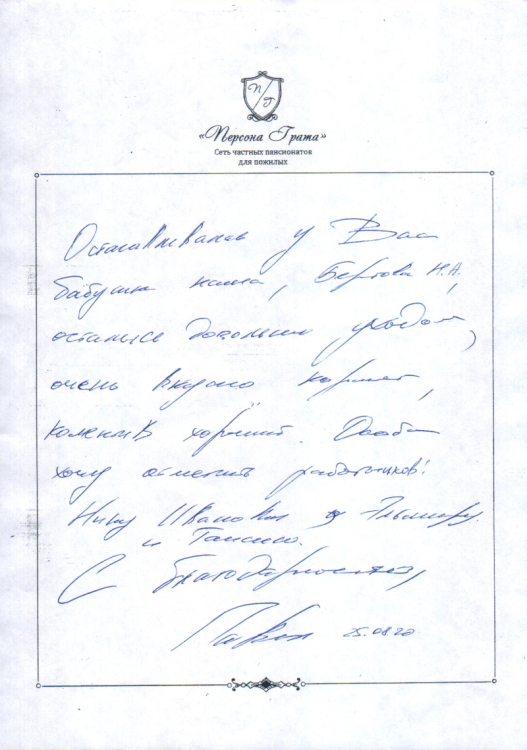 «Персона Грата»
Сеть частных пансионатов
для пожилых
Останавливалась у Вас
бабушка наша, Н.А.,
остались довольны уходом,
очень вкусно кормят,
коллектив хороший. Особо
хочу отметить работников:
Нину Ивановну Эльмиру
и Таисию.
С благодарностью,
25.08.20